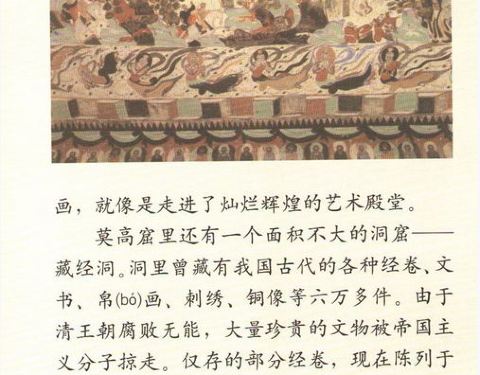 画，就像是走进了灿烂辉煌的艺术殿堂。
莫高窟里还有一个面积不大的洞窟——
藏经洞。洞里曾藏有我国古代的各种经卷、文
书、帛(bó)画、刺绣、铜像等六万多件。由于
清王朝腐败无能，大量珍贵的文物被帝国主
义分子掠走。仅存的部分经卷，现在陈列于